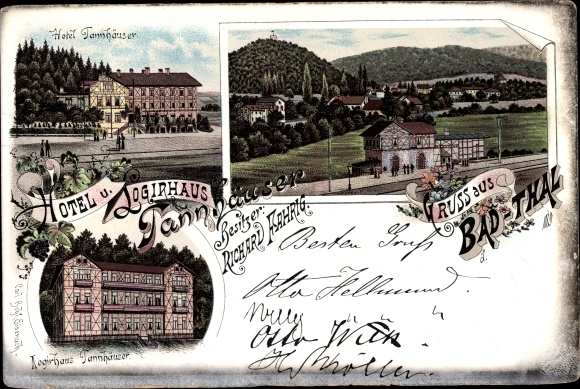 Hotel Tannhäuser.
HOTEL u. LOGIRHAUS
Tannhäuser
Besitzer:
RICHARD FAHRIG.
GRUSS aus
BAD-THAL
d.
Logirhaus Tannhäuser.
Besten Gruß
Otto Hellmund.
Willy " "
Otto
H. Möller.